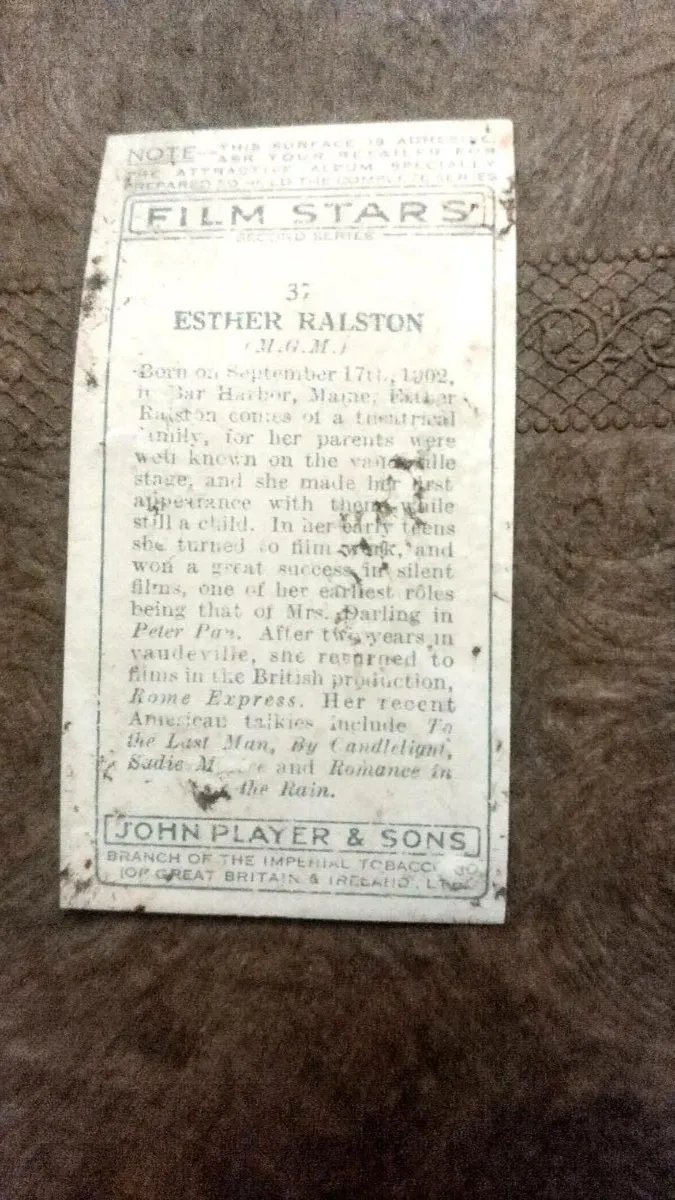 NOTE—THIS SURFACE IS ADHESIVE.
ASK YOUR RETAILER FOR
THE ATTRACTIVE ALBUM SPECIALLY
PREPARED TO HOLD THE COMPLETE SERIES
FILM STARS
SECOND SERIES
37
ESTHER RALSTON
(M.G.M.)
Born on September 17th, 1902,
in Bar Harbor, Maine, Esther
Ralston comes of a theatrical
family, for her parents were
well known on the vaudeville
stage, and she made her first
appearance with them while
still a child. In her early teens
she turned to film work, and
won a great success in silent
films, one of her earliest rôles
being that of Mrs. Darling in
Peter Pan. After two years in
vaudeville, she returned to
films in the British production,
Rome Express. Her recent
American talkies include To
the Last Man, By Candlelight,
Sadie and Romance in
the Rain.
JOHN PLAYER & SONS
BRANCH OF THE IMPERIAL TOBACCO CO
(OF GREAT BRITAIN & IRELAND), LTD